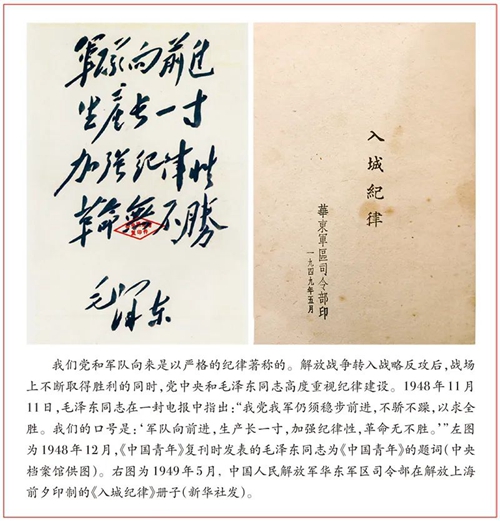 军队向前进
生产长一寸
加强纪律性
革命无不胜
毛泽东
入城紀律
華東軍區司令部印
一九四九年五月
我们党和军队向来是以严格的纪律著称的。解放战争转入战略反攻后,战场
上不断取得胜利的同时,党中央和毛泽东同志高度重视纪律建设。1948年11月
11日,毛泽东同志在一封电报中指出:“我党我军仍须稳步前进,不骄不躁,以求全
胜。我们的口号是:‘军队向前进,生产长一寸,加强纪律性,革命无不胜。’”左图
为1948年12月,《中国青年》复刊时发表的毛泽东同志为《中国青年》的题词(中央
档案馆供图)。右图为1949年5月,中国人民解放军华东军区司令部在解放上海
前夕印制的《入城纪律》册子(新华社发)。